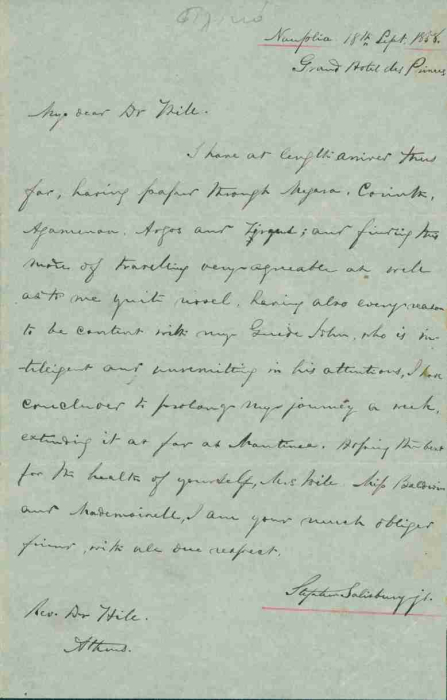 Naufplia 18th Sept. 1858.
Grand Hotel des Princes
My dear Dr Hill.
I have at length arrived thus
far, having passed through Megara. Corinth,
Agamemnon. Argos and Tyrius; and finding this
mode of travelling very agreeable as well
as to me quite novel, having also every reason
to be content with my Guide John, who is in-
telligent and unremitting in his attentions, I have
concluded to prolong my journey a week,
extending it as far as Mantinea. Hoping the best
for the health of yourself, Mrs Hill Miss Baldwin
and Mademoiselle, I am your much obliged
friend, with all due respect.
Stephen Salisbury jr.
Rev. Dr Hill.
Athens.